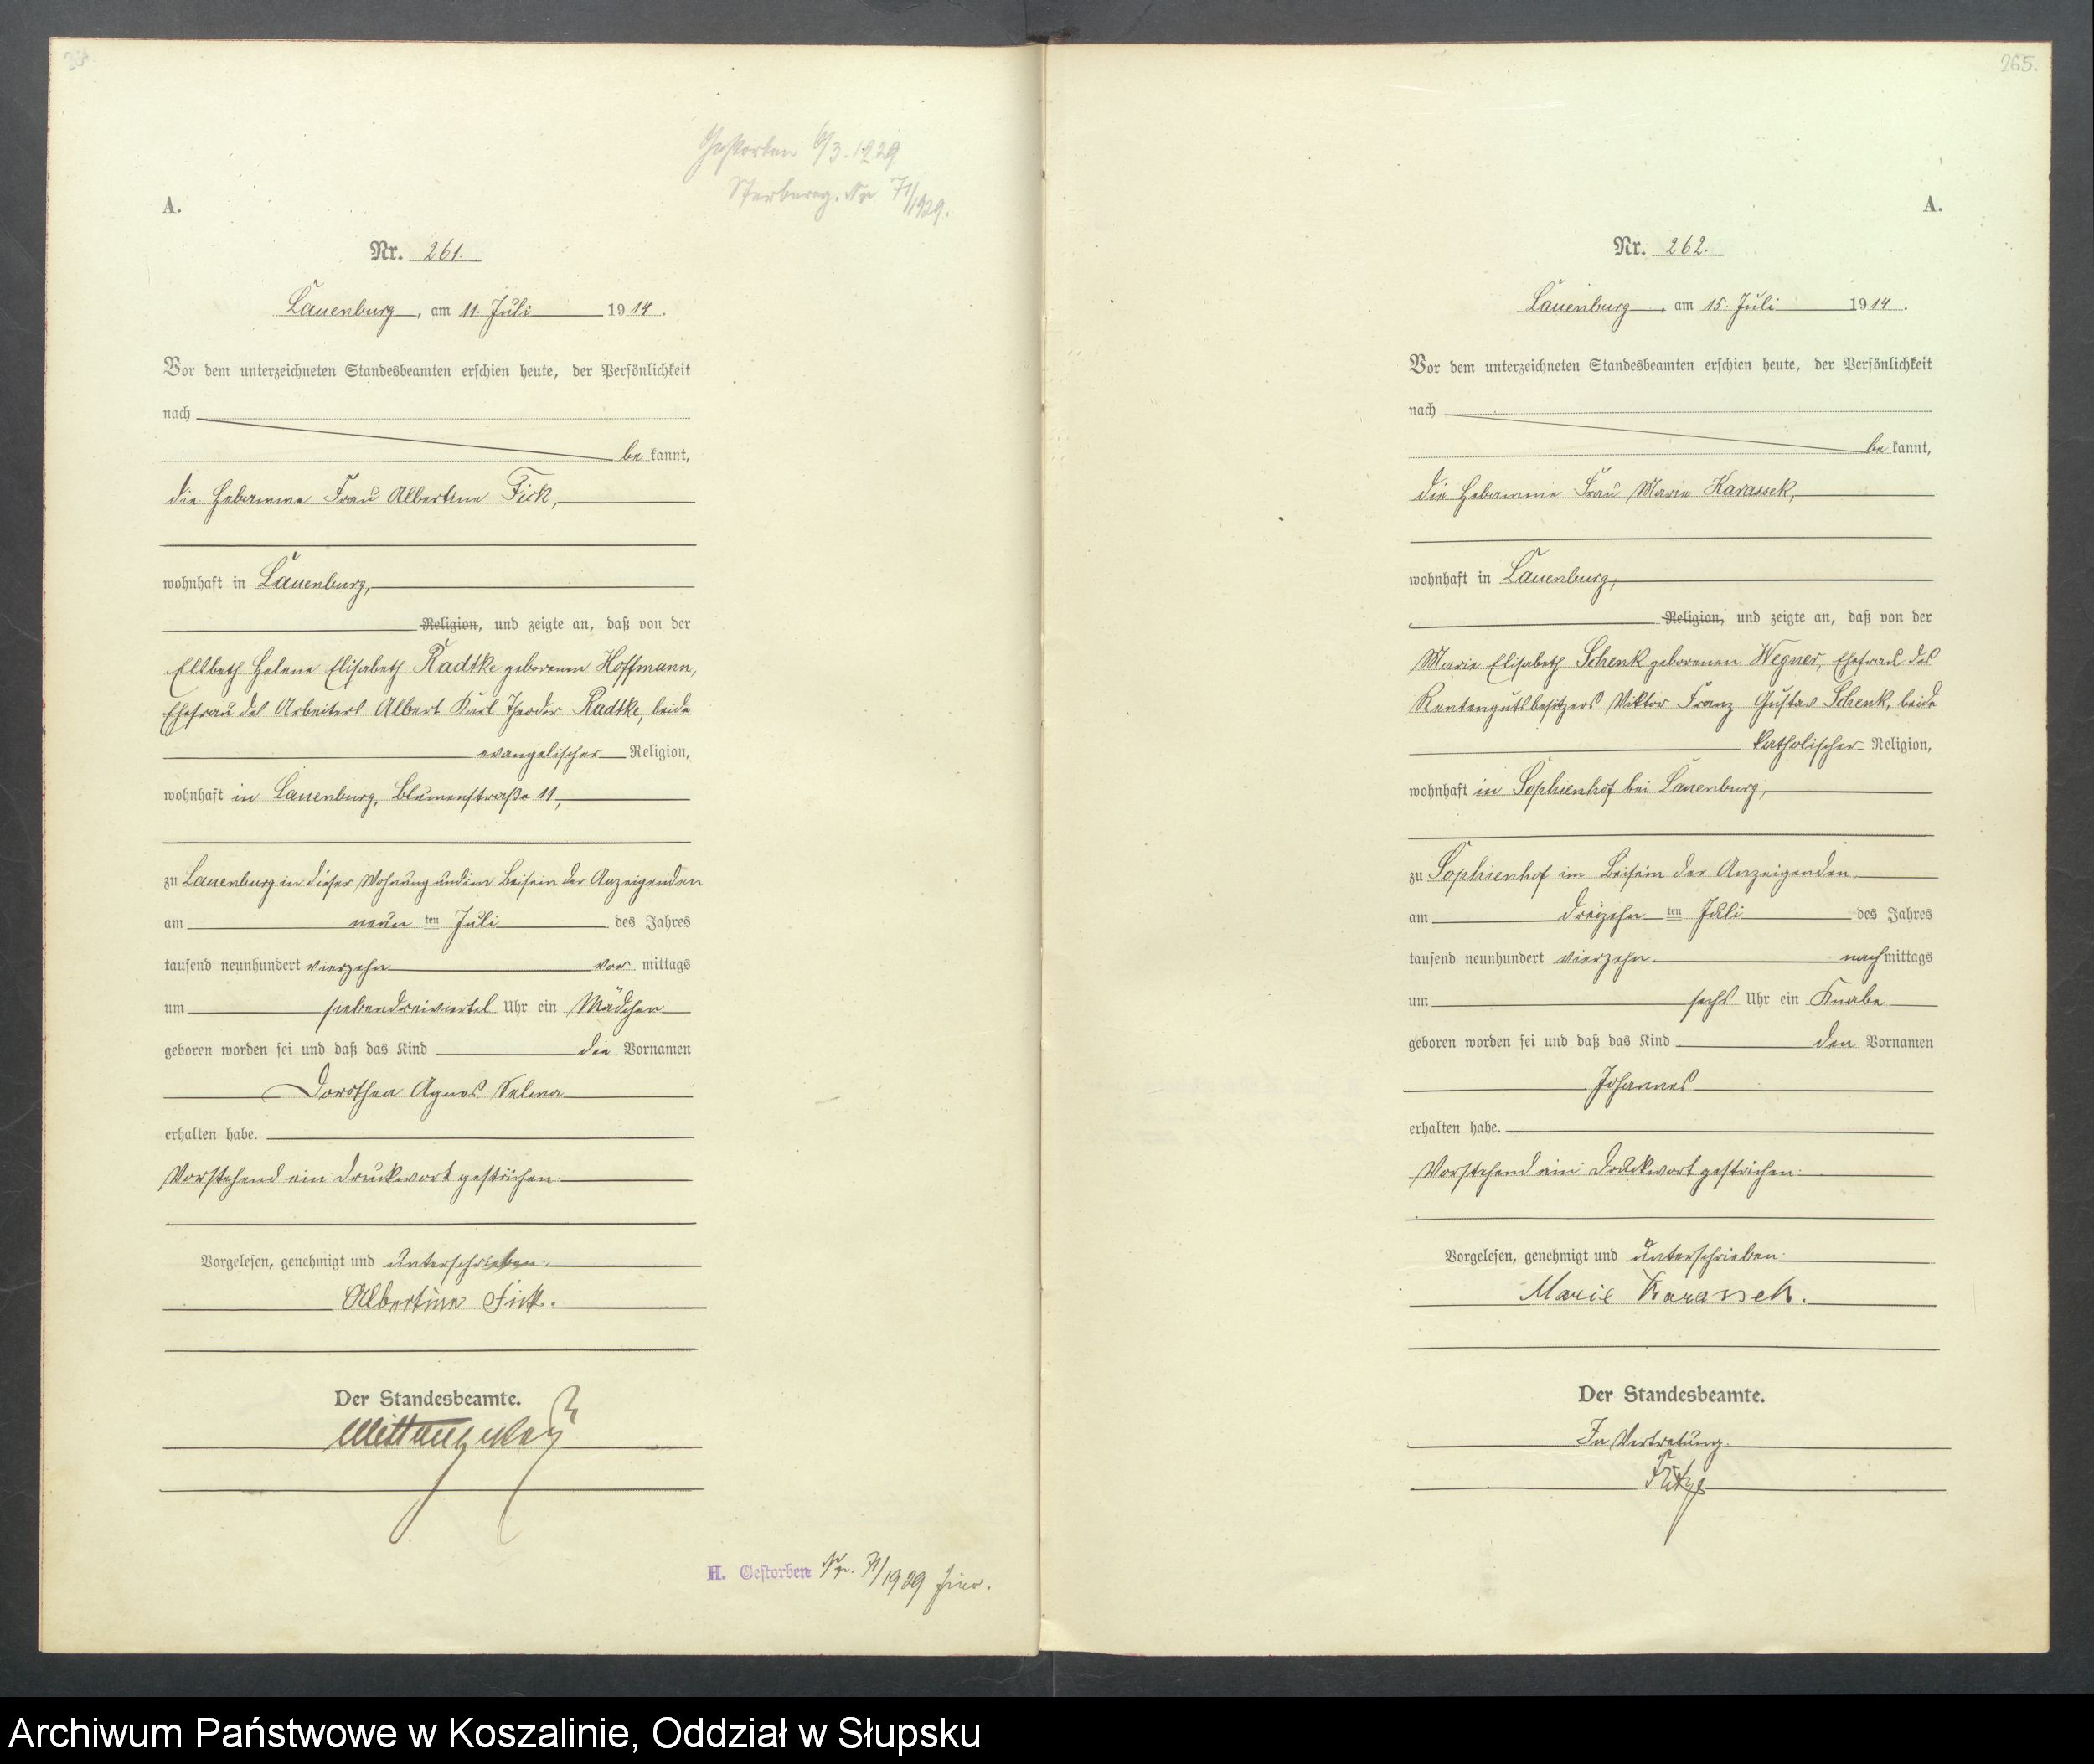 Gestorben 6/3. 1929
Sterbereg. Nr 71/1929.
A.
Nr. 261.
Lauenburg, am 11. Juli 1914.
Vor dem unterzeichneten Standesbeamten erschien heute, der Persönlichkeit
nach
be kannt,
die Hebamme Frau Albertine Fick,
wohnhaft in Lauenburg,
Religion, und zeigte an, daß von der
Elsbeth Helene Elisabeth Radtke geborenen Hoffmann,
Ehefrau des Arbeiters Albert Karl Theodor Radtke, beide
evangelischer Religion,
wohnhaft in Lauenburg, Blumenstraße 11,
zu Lauenburg in dieser Wohnung und im Beisein der Anzeigenden
am neun ten Juli des Jahres
tausend neunhundert vierzehn vor mittags
um siebendreiviertel Uhr ein Mädchen
geboren worden sei und daß das Kind die Vornamen
Dorothea Agnes Selma
erhalten habe.
Vorstehend ein Druckwort gestrichen.
Vorgelesen, genehmigt und unterschrieben.
Albertine Fick.
Der Standesbeamte.
H. Gestorben Nr. 71/1929 hier.
265.
A.
Nr. 262.
Lauenburg, am 15. Juli 1914.
Vor dem unterzeichneten Standesbeamten erschien heute, der Persönlichkeit
nach
be kannt,
die Hebamme Frau Marie Karassek,
wohnhaft in Lauenburg,
Religion, und zeigte an, daß von der
Marie Elisabeth Schenk geborenen Wegner, Ehefrau des
Rentengutsbesitzers Viktor Franz Gustav Schenk, beide
katholischer Religion,
wohnhaft in Sophienhof bei Lauenburg,
zu Sophienhof im Beisein der Anzeigenden
am dreizehn ten Juli des Jahres
tausend neunhundert vierzehn nach mittags
um sechs Uhr ein Knabe
geboren worden sei und daß das Kind den Vornamen
Johannes
erhalten habe.
Vorstehend ein Druckwort gestrichen.
Vorgelesen, genehmigt und unterschrieben.
Marie Karassek.
Der Standesbeamte.
In Vertretung.
Archiwum Państwowe w Koszalinie, Oddział w Słupsku